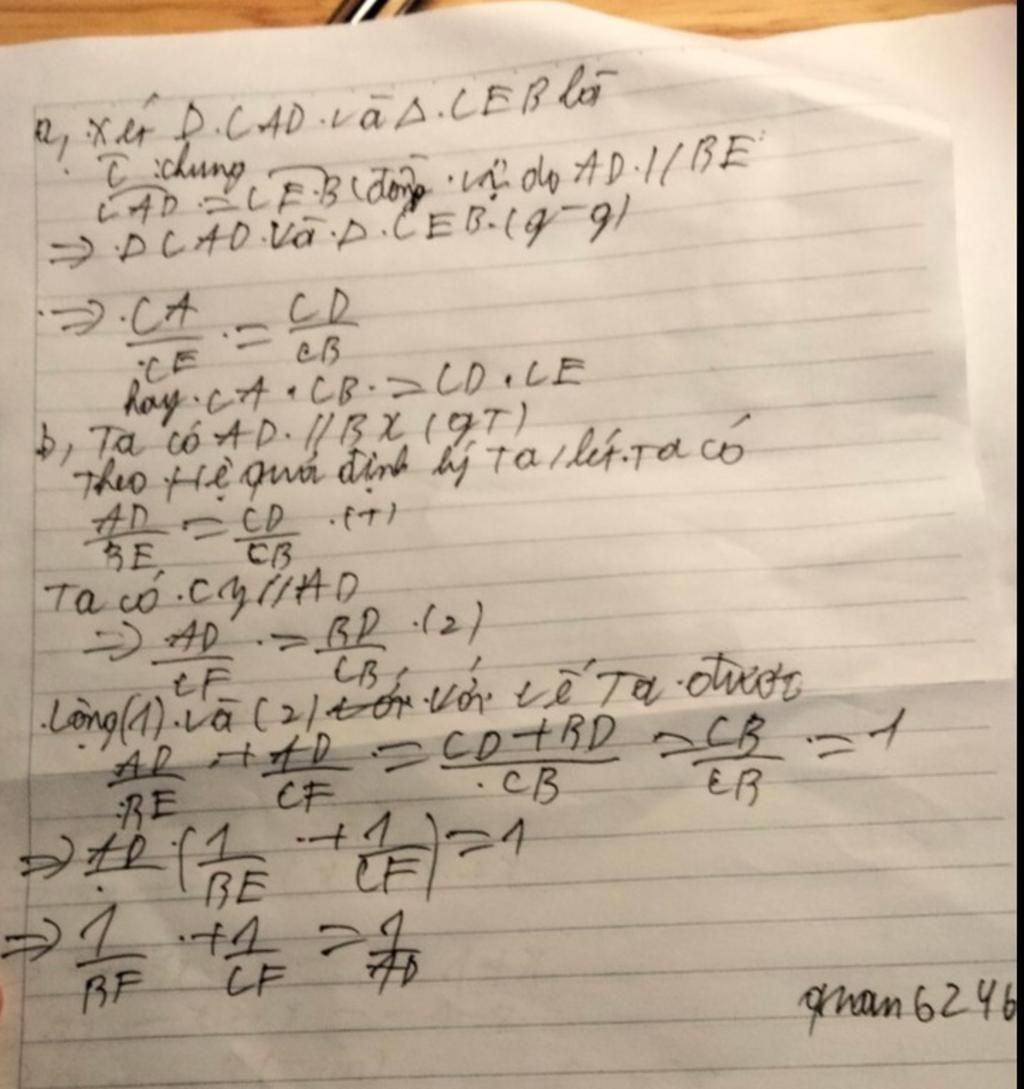 a, Xét D.CAD và Δ.CEB là
C chung
CAD = CEB (đồng vị do AD // BE
=> D CAD và D.CEB (g-g)
=> CA/CE = CD/CB
hay CA . CB = CD . CE
b, Ta có AD // Bx (gT)
Theo Hệ quả định lý Ta/lét Ta có
AD/BE = CD/CB (1)
Ta có Cy // AD
=> AD/CF = BD/CB (2)
Cộng (1) và (2) với vế Ta được
AD/BE + AD/CF = CD+BD/CB = CB/CB = 1
=> AD (1/BE + 1/CF) = 1
=> 1/BF + 1/CF = 1/AD
quan6246